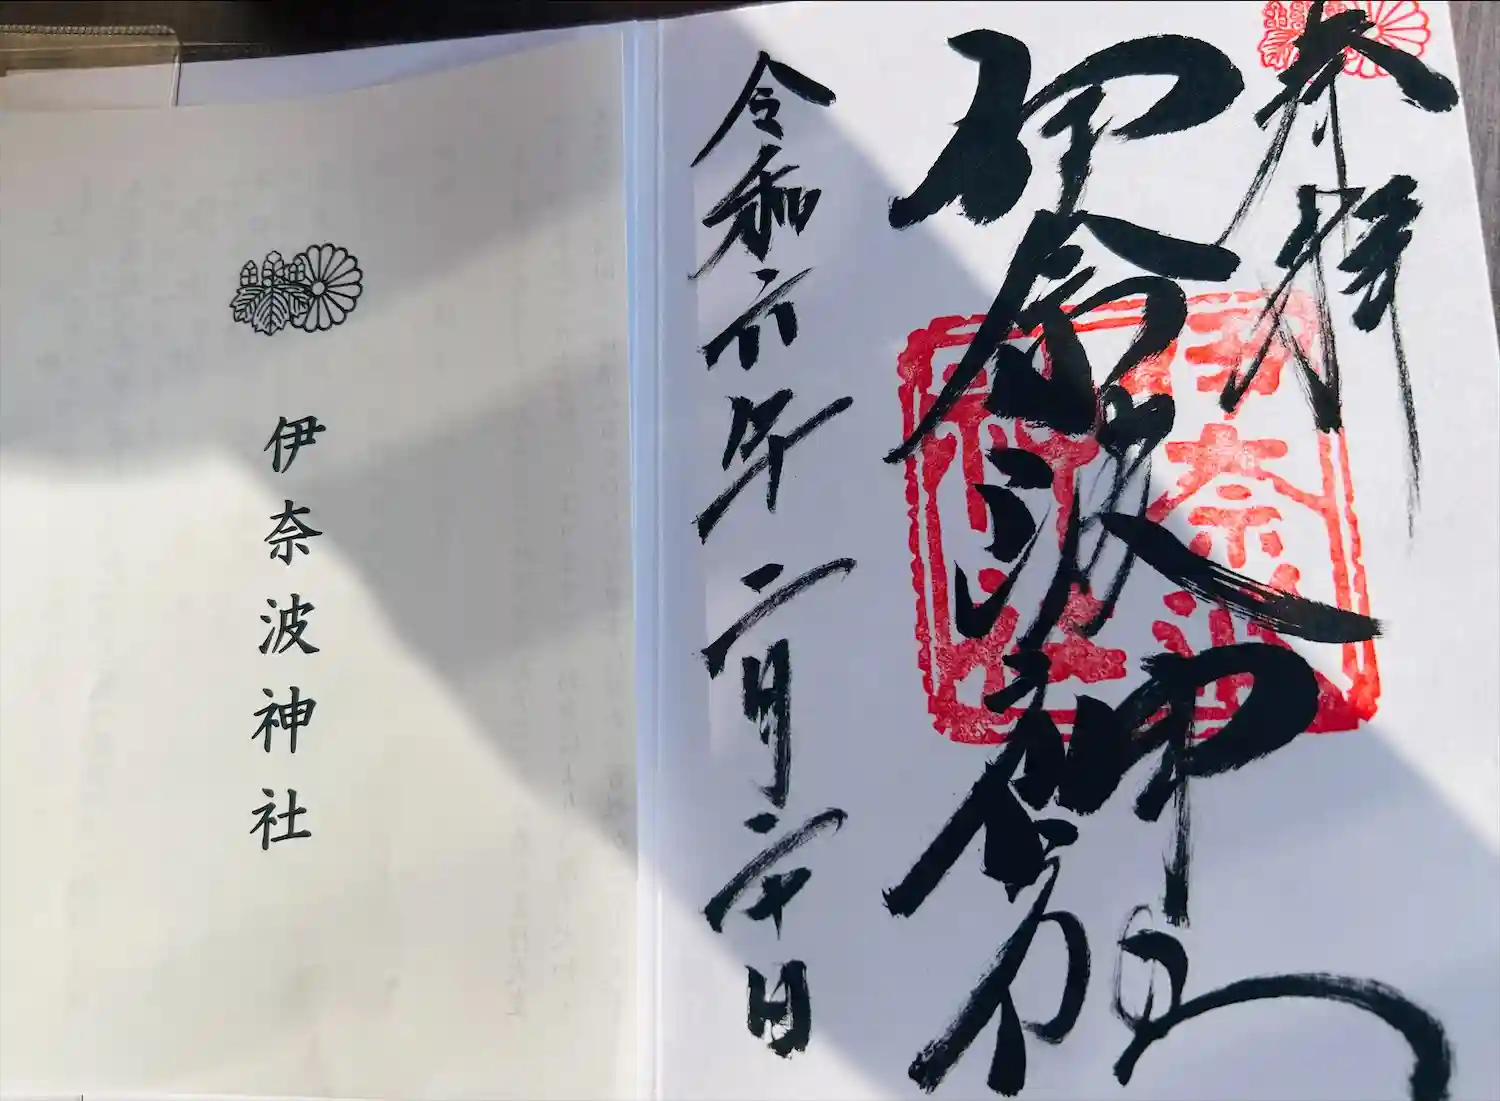 奉拝
伊奈波神社
伊奈波
神社
令和六年二月二十日
伊奈波神社